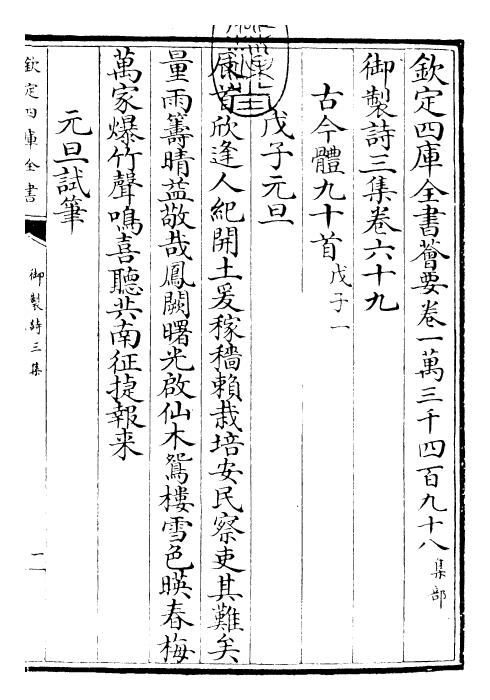 欽定四庫全書薈要卷一萬三千四百九十八 集部
御製詩三集卷六十九
古今體九十首 戊子一
戊子元旦
首欣逢人紀開土爰稼穡賴栽培安民察吏其難矣
量雨籌晴益敬哉鳳闕曙光啟仙木鴛樓雪色暎春梅
萬家爆竹聲鳴喜聽共南征捷報来
元旦試筆
欽定四庫全書
御製詩三集
一